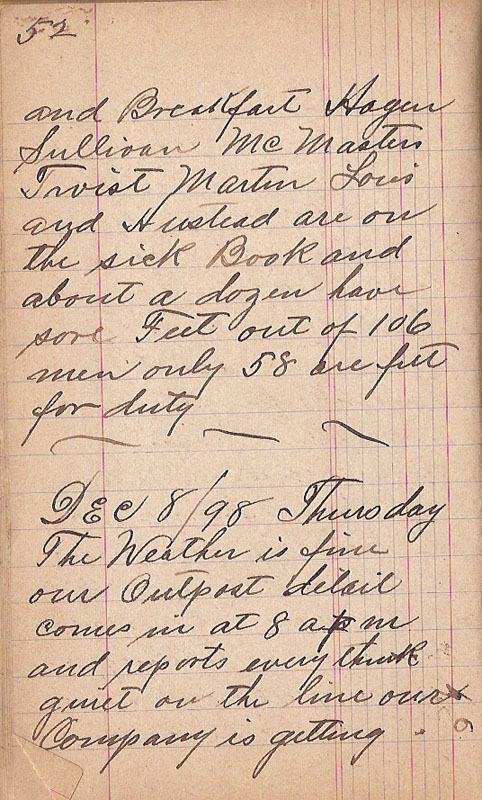 52
and Breakfast Hagen
Sullivan McMasters
Twist Martin Louis
and Hustead are on
the sick Book and
about a dozen have
sore Feet out of 106
men only 58 are fitt
for duty
DEC 8/98 Thursday
The Weather is fine
our Outpost detail
comes in at 8 a m
and reports every think
quiet on the line our
Company is getting